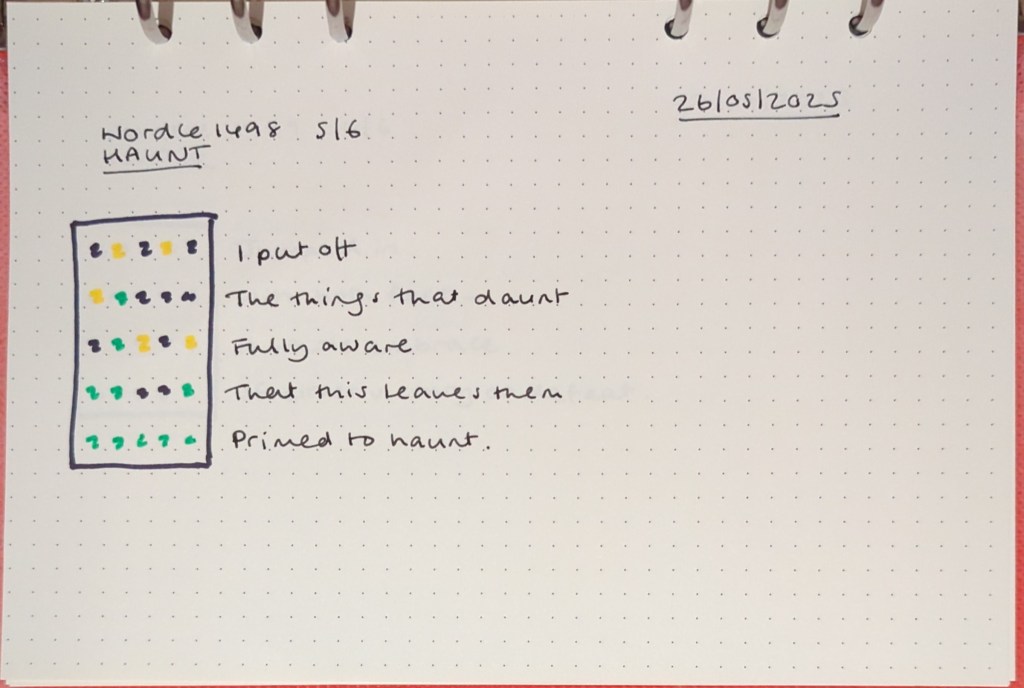 26/05/2025
Wordle 1498 5/6
HAUNT
I put off
The things that daunt
Fully aware
That this leaves them
Primed to haunt.